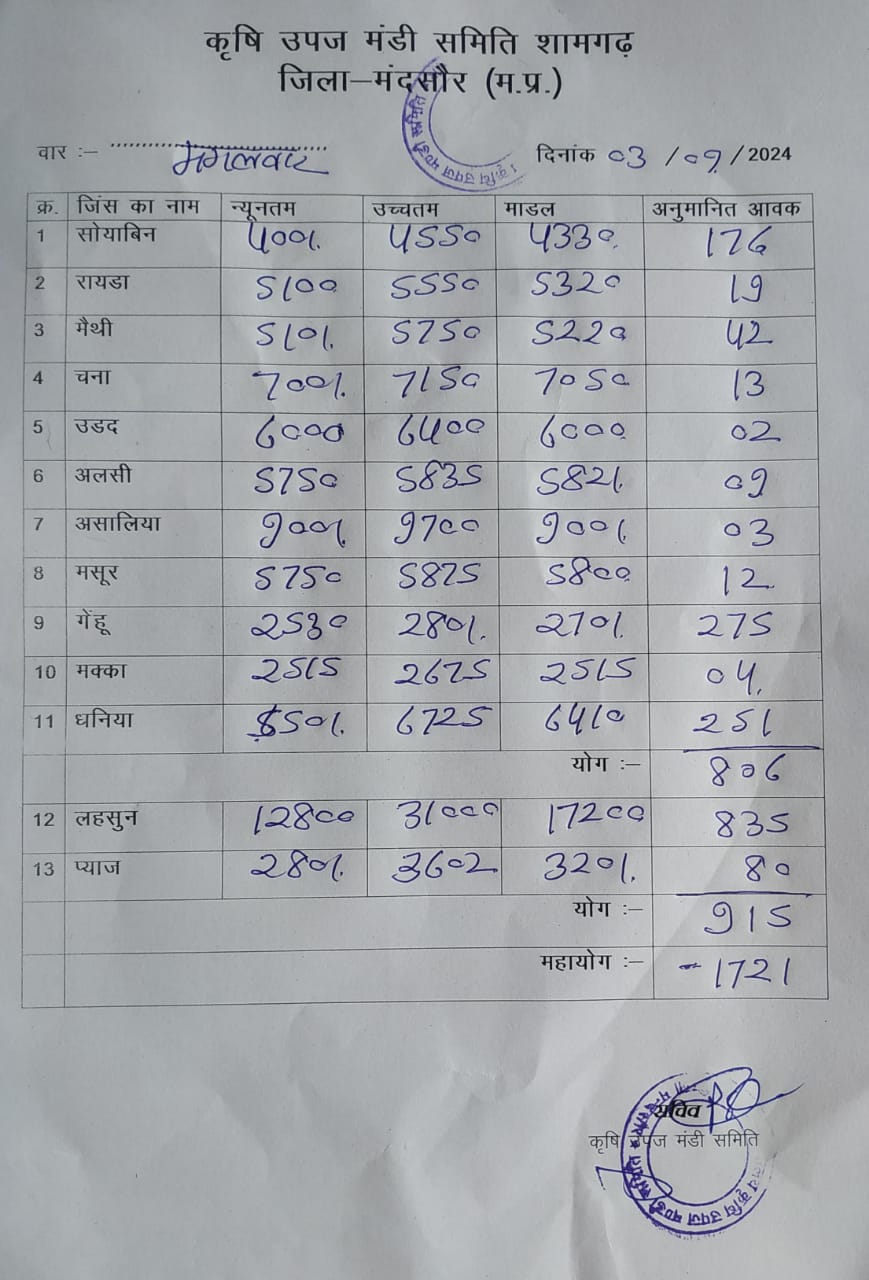 कृषि उपज मंडी समिति शामगढ़
जिला–मंदसौर (म.प्र.)
वार :– मगलवार दिनांक 03 / 09 / 2024
क्र. जिंस का नाम न्यूनतम उच्चतम माडल अनुमानित आवक
1 सोयाबिन 4001. 4550 4330. 176
2 रायडा 5100 5550 5320 19
3 मैथी 5101. 5750 5220 42
4 चना 7001. 7150 7050 13
5 उडद 6000 6400 6000 02
6 अलसी 5750 5835 5821. 09
7 असालिया 9001. 9700 9001. 03
8 मसूर 5750 5875 5800 12
9 गेंहू 2530 2801. 2701. 275
10 मक्का 2515 2675 2515 04.
11 धनिया 5501. 6725 6410 251
योग :– 806
12 लहसुन 12800 31000 17200 835
13 प्याज 2801. 3602 3201. 80
योग :– 915
महायोग :– 1721
सचिव
कृषि उपज मंडी समिति